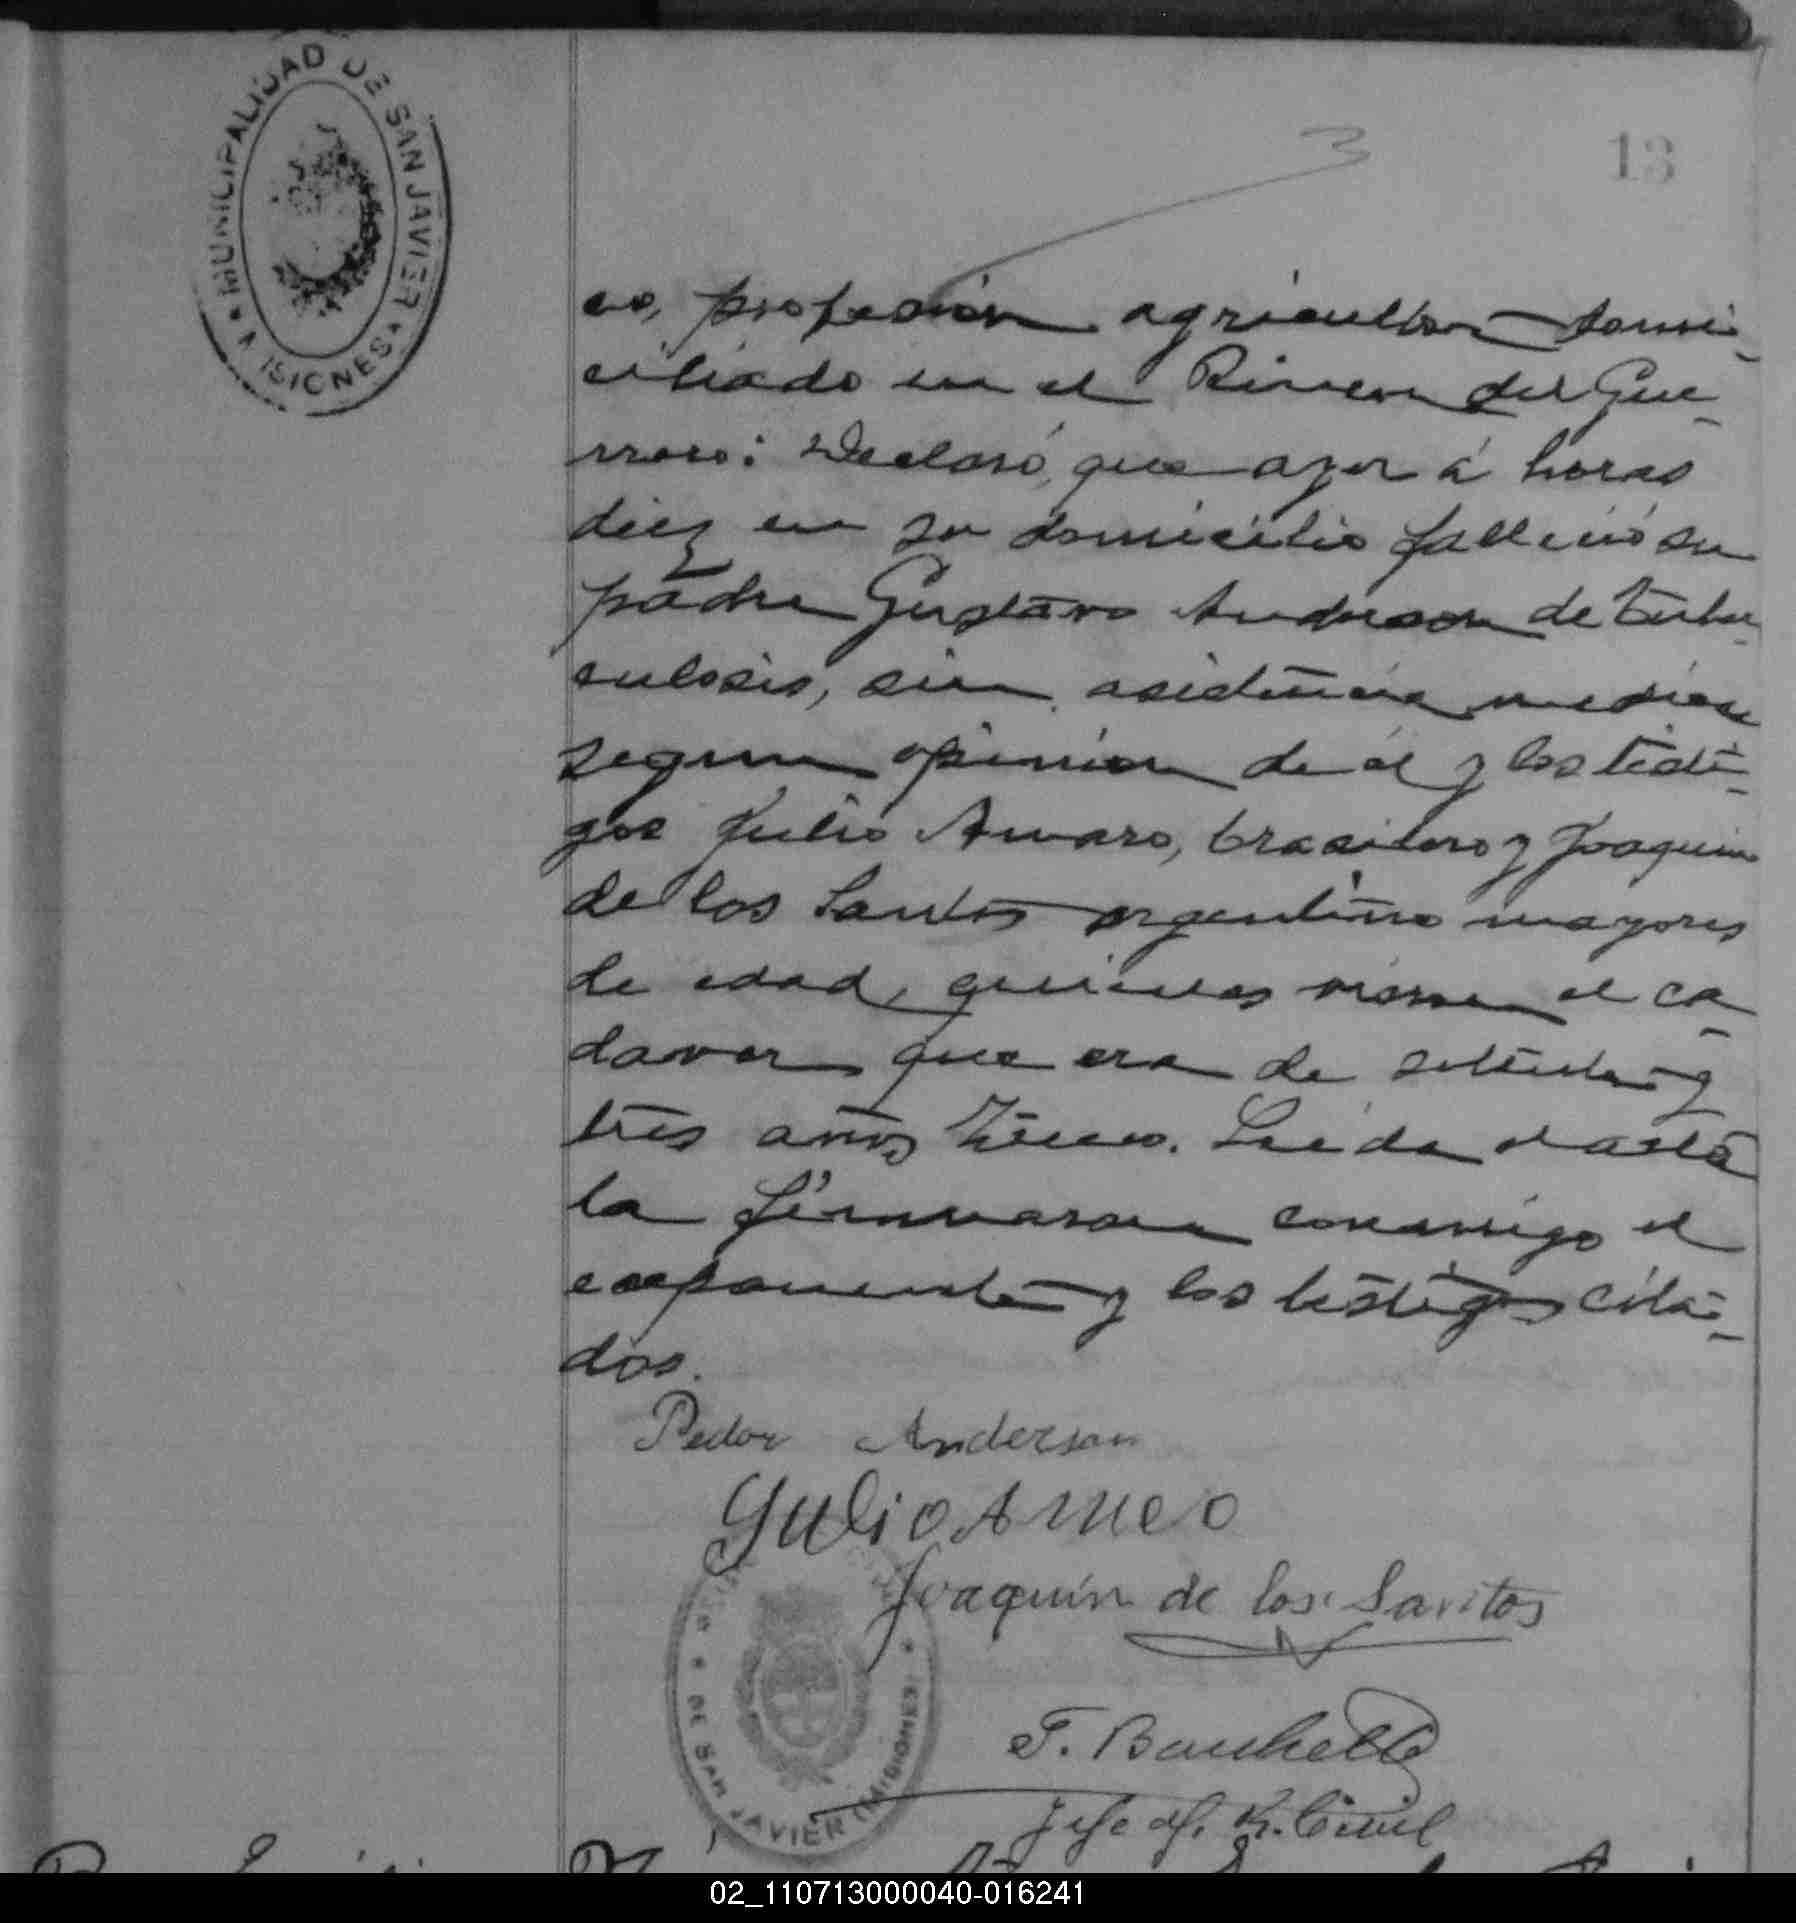 MUNICIPALIDAD DE SAN JAVIER
MISIONES
3
13
co, profesión agricultor domi-
ciliado en el Rincon del Gue-
rrero: Declaró, que ayer á horas
diez en su domicilio falleció su
padre Gustavo Anderson de tuber-
culosis, sin asistencia medica
segun opinion de él y los testi-
gos Julio Amaro, brasilero y Joaquin
de los Santos argentino mayores
de edad, quienes vieron el ca-
daver que era de setenta y
tres años Leida el acta
la firmaron conmigo el
exponente y los testigos cita-
dos.
Pedor Anderson
Gulio
Joaquin de los Santos
F.
Jefe del R. Civil
DE SAN JAVIER (MISIONES)
02_110713000040-016241